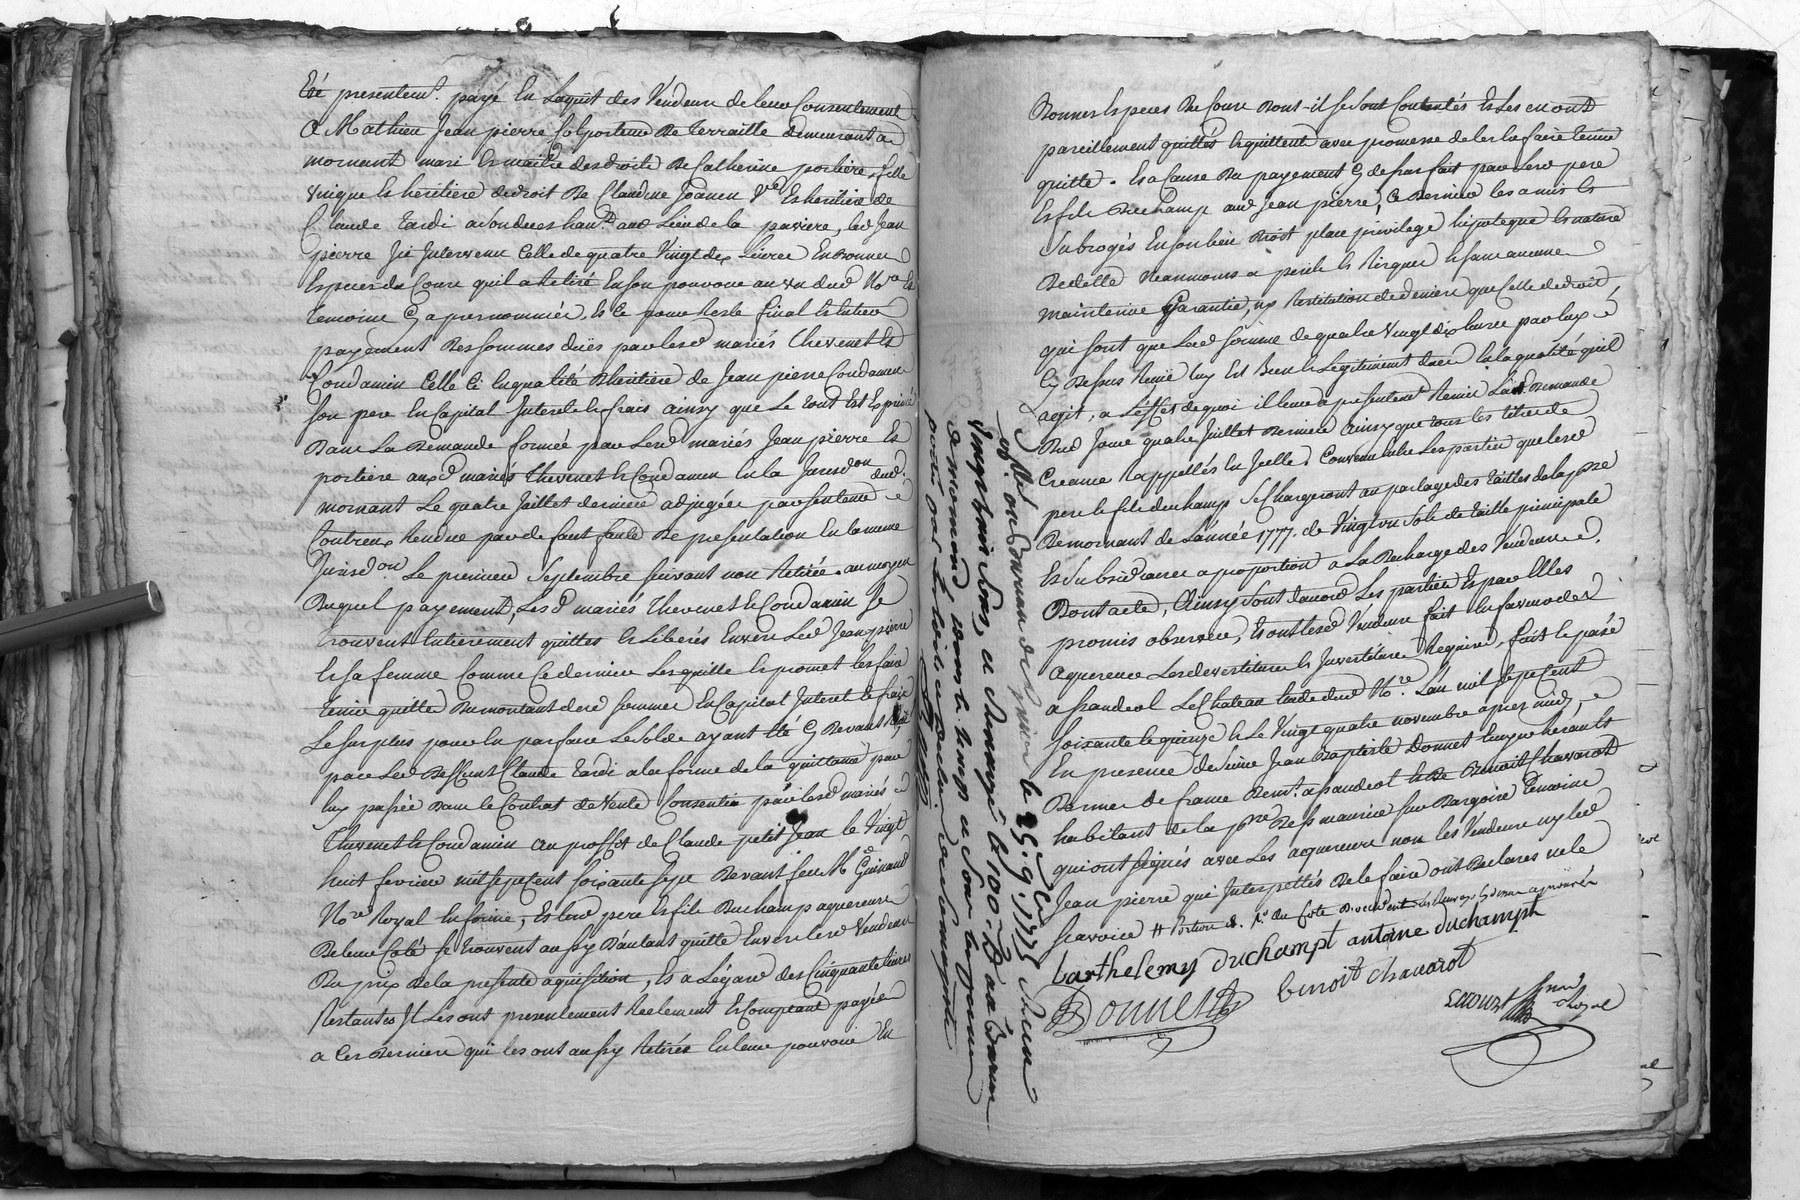 Eté presentemt. payé En Laquit des Vendeurs de leur Consentement
a Mathieu Jean pierre Colporteur De terraille demeurant a
mornant mari Et maitre des droits De Catherine portiere, fille
Unique Et heritiere de droit De Claudine Joanen Ve. Et heritiere de
Claude tardi a son deces hant. aud Lieu de la pariere, led Jean
pierre Icy Intervenu Celle de quatre Vingt dix Livres En Bonnes
Especes du Cours quil a Retiré En son pouvoir au vu dud Nore. Et
temoins Cy apres nommés, Et Ce pour Reste final Et Entier
payement Des sommes dües par lesd mariés thevenet Et
Condamin Celle Ci En qualité D'heritiere de Jean pierre Condamin
son pere En Capital Interets Et frais ainsy que Le tout Est Exprimé
Dans La Demande formée par Lesd mariés Jean pierre Et
portiere auxd mariés thevenet Et Condamin En la Jurisdon dud.
mornant Le quatre Juillet dernier adjugée par sentence
Contreux Rendue par defaut faute De presentation En la meme
Jurisdon. Le premier Septembre suivant non Retirée. au moyen
Duquel payement, Lesd mariés thevenet Et Condamin Se
trouvent Entierement quittes Et Liberés Envers Led Jean pierre
Et sa femme Comme Ce dernier Les quitte Et promet les faire
tenir quittes Du montant desd sommes En Capital Interet Et frais
Le surplus pour En parfaire Le Solde ayant Eté Cy Devant payé
par Led Deffunt Claude tardi a la forme de la quittance par
luy passée Dans le Contrat de Vente Consentie par lesd mariés
Thevenet Et Condamin au proffit de Claude petit Jean le Vingt
huit fevrier mil sept Cent soixante sept Devant feu Me Guinand
Nore Royal En forme, Et lesd pere Et fils Duchamp aquereurs
De leur Coté se trouvent aussy D'autant quitte Envers lesd Vendeurs
Du prix De la presente aquisition, Et a L'égard des Cinquante livres
Restantes Ils Les ont presentement Reelement Et Comptant payées
a Ces Derniers qui les ont aussy Retirés En leur pouvoir En
Bonnes Especes Du Cours Dont-il se sont Contentés Et Les en ont
pareillement quittés Et quittent avec promesse de les En faire tenir
quitte. Et a Cause Du payement Cy dessus fait par lesd pere
Et fils Duchamp aud Jean pierre, Ce Dernier les a mis Et
Subrogés En son lieu Droit place privilege hipoteque Et nature
De dette Neanmoins a perils Et Risques Et sans aucune
maintenue Garantie, ny Restitution de deniers que Celle de droit
qui sont que Lad somme de quatre Vingt dix livres par luy
Cy Dessus Reçue luy Est Bien Et Legitimement due En la qualité quil
agit, a L'effet de quoi il leur a presentemt Remis Lad Demande
Dud Jour quatre Juillet Dernier ainsy que tous les titres de
Creance Rappellés En Icelle. Convenu Entre Les parties que lesd
pere Et fils duchamp Se Chargeront au partage des tailles de la psse
De mornant de L'année 1777. de Vingt un Sols de taille principale
Et Subsidiaires a proportion a La Decharge des Vendeurs.
Dont acte, Ainsy Sont d'acord Les parties Et par Elles
promis observer, Et ont lesd Vendeurs fait En faveur des
aquereurs Les devestitures Et Investitures Requises, fait Et passé
a standeol Le Chateau Etude dud Nore. L'an mil Sept Cent
soixante Et quinze Et Le Vingt quatre novembre apres midy,
En presence de Sieur Jean Baptiste Donnet
Demt. a standeol Et De Benoit Chavorot
habitant de la psse De st maurice sur Dargoire temoins
qui ont signés avec Les aquereurs non les Vendeurs ny led
Jean pierre qui Interpellés De le faire ont Declarés ne le
scavoir
barthelemy Duchampt antoine duchampt
Donnet benoit Chavorot